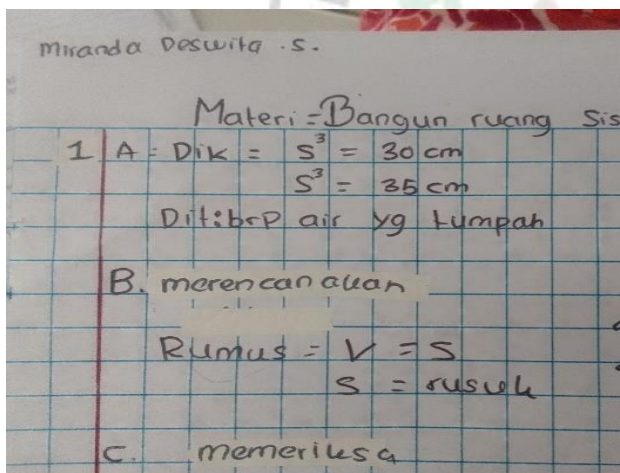 Miranda Deswita .S.
Materi = Bangun ruang Sis
1 A = Dik = S³ = 30 cm
S³ = 35 cm
Dit : brp air yg tumpah
B. merencanakan
Rumus = V = S
S = rusuk
C. memeriksa